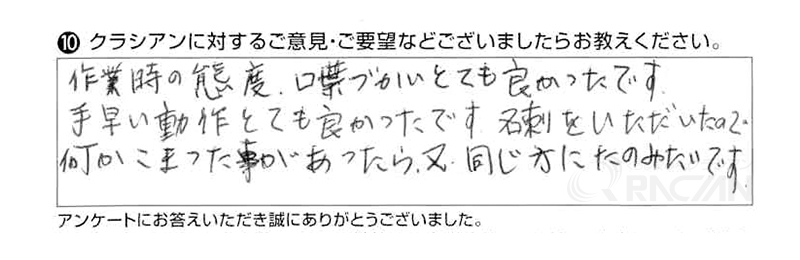 ⑩ クラシアンに対するご意見・ご要望などございましたらお教えください。
作業時の態度、口葉づかいとても良かったです。
手早い動作とても良かったです。名刺をいただいたので
何かこまった事があったら、又、同じ方にたのみたいです。
アンケートにお答えいただき誠にありがとうございました。
RACIAN